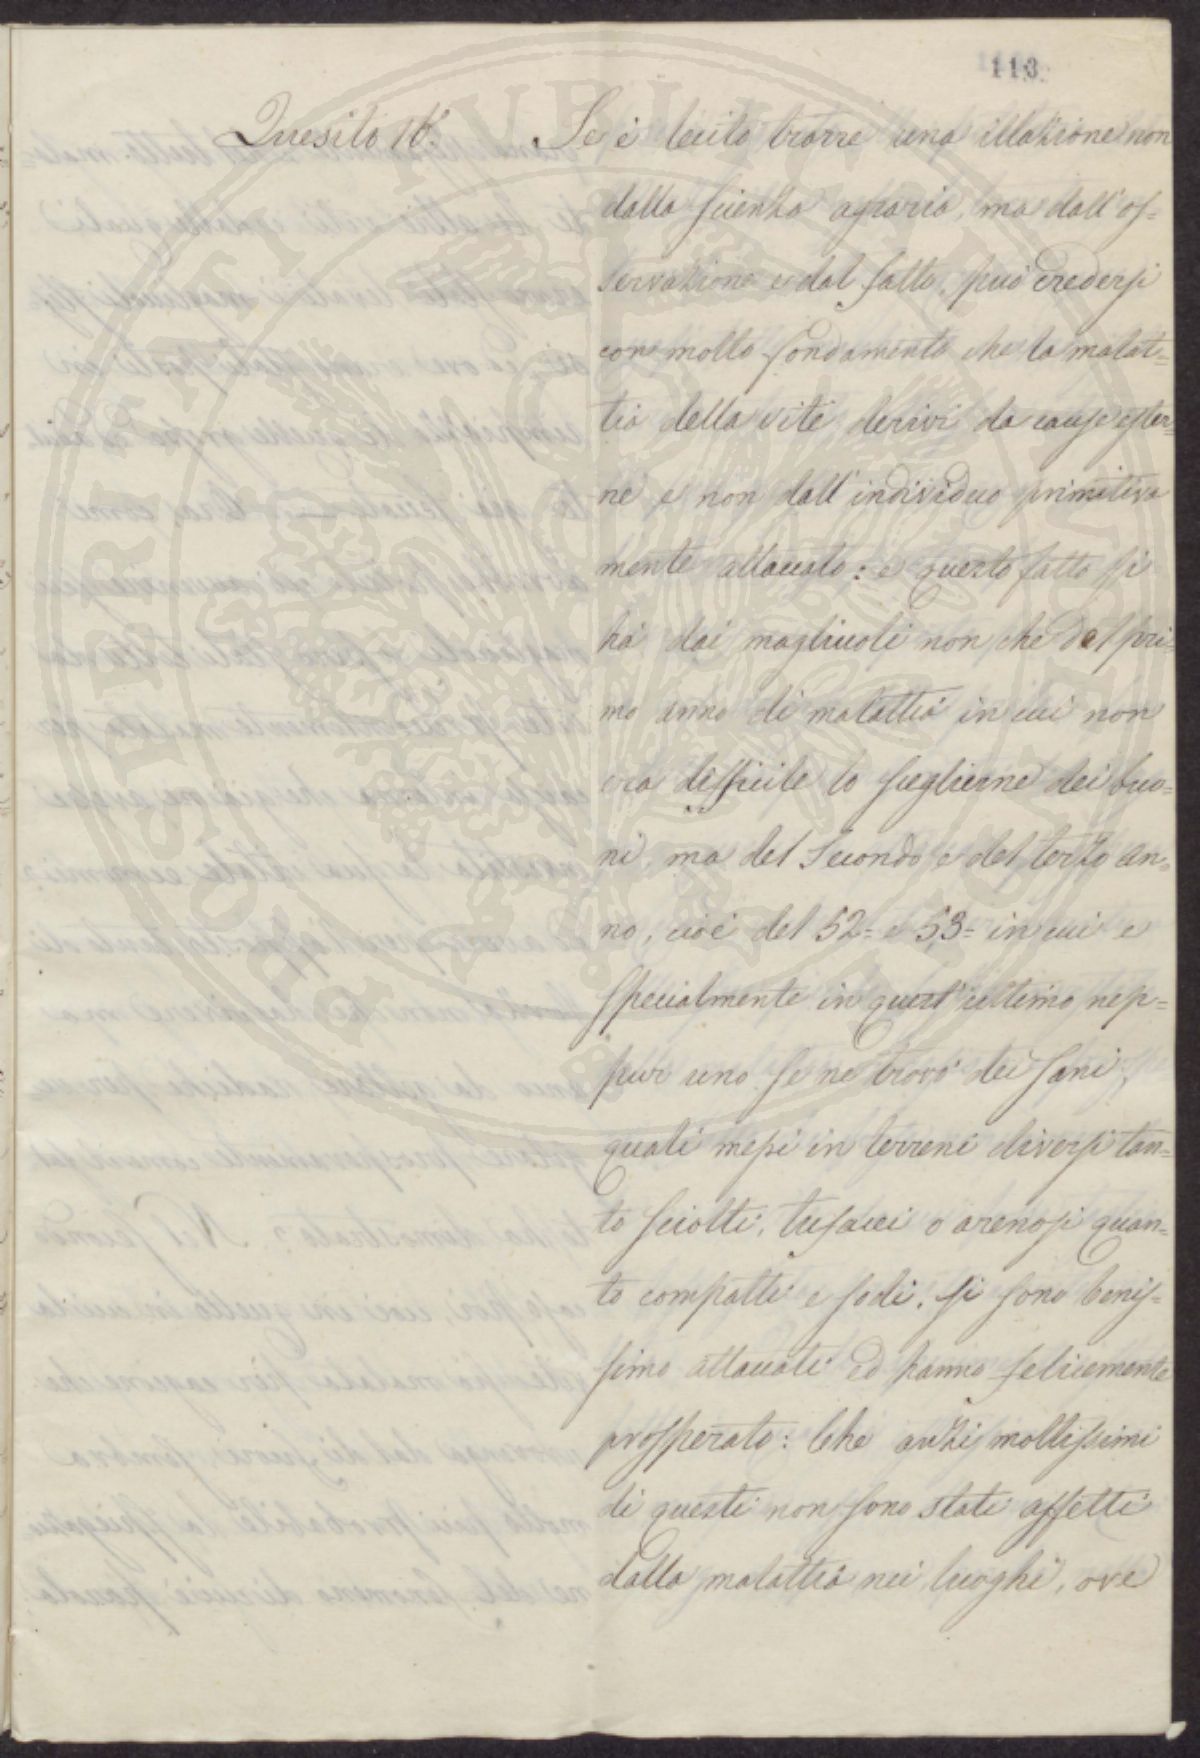 113.
Quesito 16.° Se è lecito trarre una illazione non
dalla scienza agraria, ma dall'os=
servazione e dal fatto, può credersi
con molto fondamento che la malat=
tia della vite derivi da cause ester=
ne e non dall'individuo primitiva
mente attaccato: e questo fatto si
ha dai magliuoli non che del pri=
mo anno di malattia in cui non
era difficile lo sceglierne dei buo=
ni, ma del secondo e del terzo an=
no, cioè del 52= e 53= in cui e
specialmente in quest'ultimo nep=
pur uno se ne trovò dei sani,
quali messi in terreni diversi tan=
to sciolti, tufacei o arenosi quan=
to compatti e sodi, si sono benis=
simo attaccati ed hanno felicemente
prosperato: Che anzi moltissimi
di questi non sono stati affetti
dalla malattia nei luoghi, ove
PROSPERITATI PUBLICAE AUGENDAE